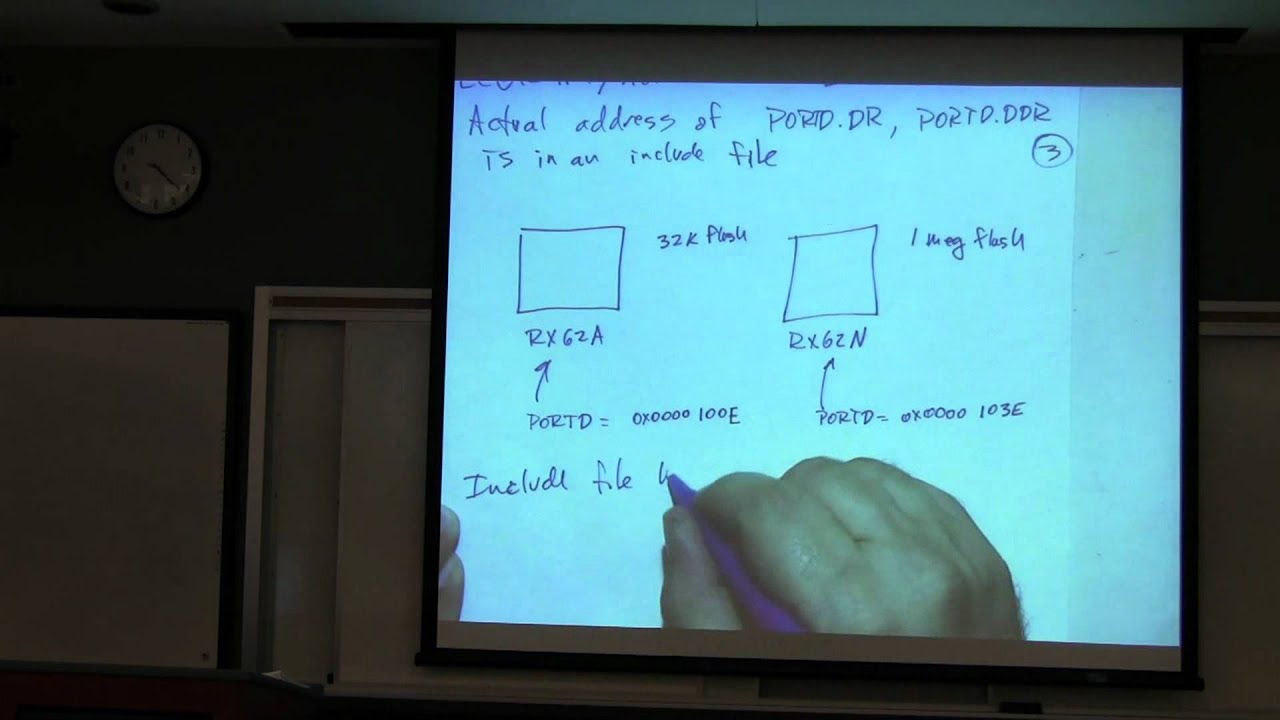 Actual address of PORTD.DR, PORTD.DDR
is in an include file
3
32K flash
1 meg flash
RX62A
RX62N
PORTD = 0x0000 100E
PORTD = 0x0000 103E
Include file